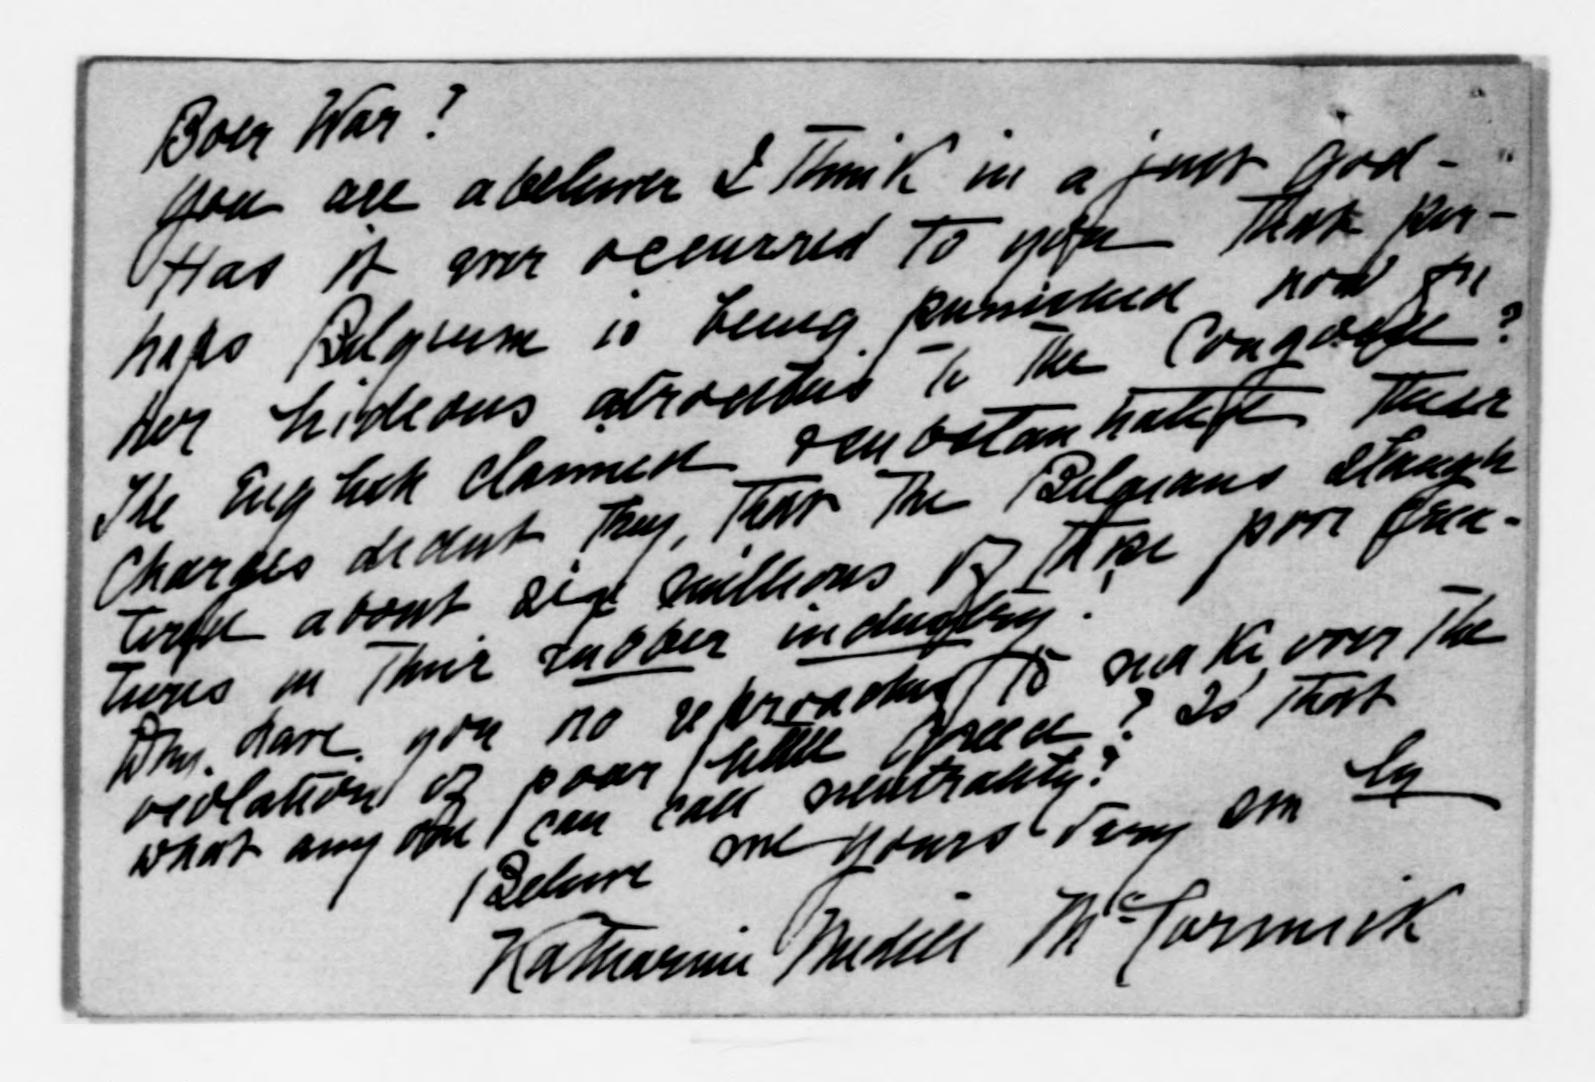 Boer War?
you are a believer I think in a just God -
Has it ever occurred to you that per-
haps Belgium is being punished now for
her hideous atrocities to the Congoese?
The English claimed substantiated their
charges didnt they, that the Belgians slaugh
tered about six millions of those poor crea-
tures in their rubber industry.
Why have you no reproaches to make over the
violation of poor little Greece? Is that
what any one can call neutrality?
Believe me yours very sin ly
Katharine Medill McCormick